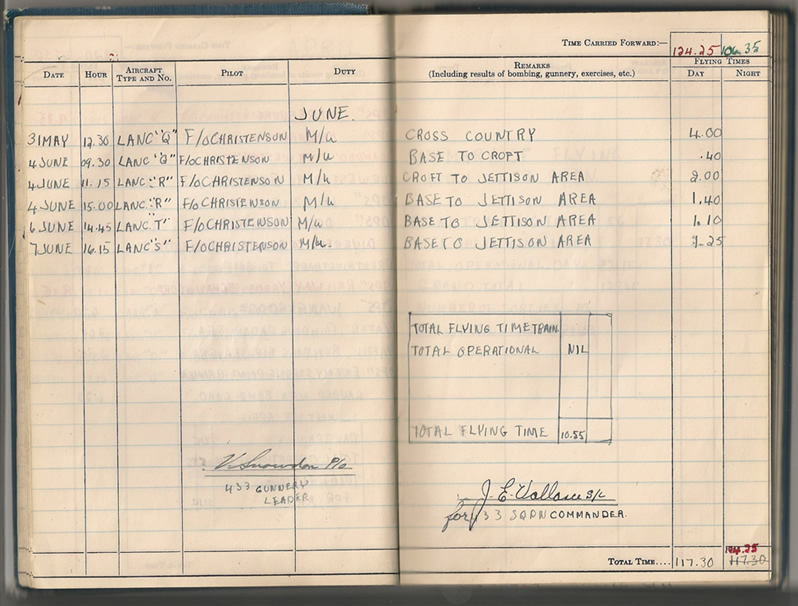 TIME CARRIED FORWARD:— 124.25 106.35
DATE HOUR AIRCRAFT TYPE AND NO. PILOT DUTY REMARKS (Including results of bombing, gunnery, exercises, etc.) FLYING TIMES DAY NIGHT
JUNE.
31 MAY 12.30 LANC "Q" F/O CHRISTENSON M/U CROSS COUNTRY 4.00
4 JUNE 09.30 LANC "Q" F/O CHRISTENSON M/U BASE TO CROFT .40
4 JUNE 11.15 LANC "R" F/O CHRISTENSON M/U CROFT TO JETTISON AREA 2.00
4 JUNE 15.00 LANC "R" F/O CHRISTENSON M/U BASE TO JETTISON AREA 1.40
6 JUNE 14.45 LANC "T" F/O CHRISTENSON M/U BASE TO JETTISON AREA 1.10
7 JUNE 16.15 LANC "S" F/O CHRISTENSON M/U BASE TO JETTISON AREA 1.25
TOTAL FLYING TIME TRAIN
TOTAL OPERATIONAL NIL
TOTAL FLYING TIME 10.55
V. Snowdon P/O
433 GUNNERY
LEADER
J. E. Vollans S/L
for 433 SQDN COMMANDER.
124.25
TOTAL TIME.... 117.30 117.30